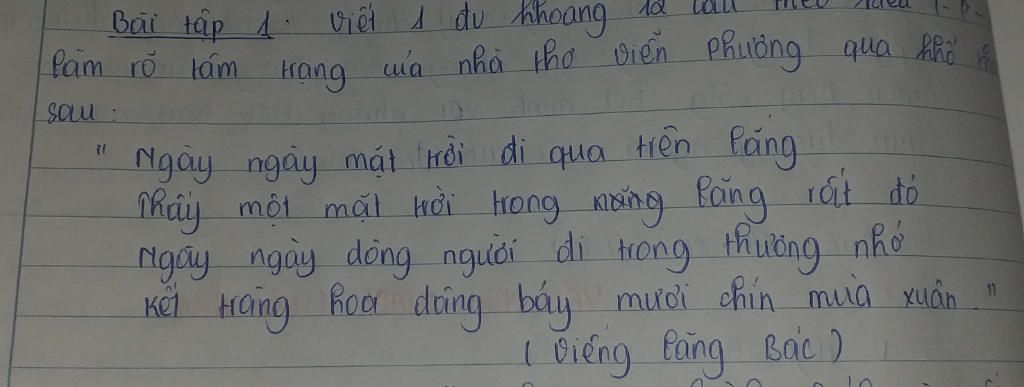 Bài tập 1: Viết 1 đv khoảng 12 câu theo kiểu T-P-
làm rõ tâm trạng của nhà thơ Viễn Phương qua khổ
sau:
" Ngày ngày mặt trời đi qua trên lăng
Thấy một mặt trời trong lăng rất đỏ
Ngày ngày dòng người đi trong thương nhớ
Kết tràng hoa dâng bảy mươi chín mùa xuân "
( Viếng lăng Bác )